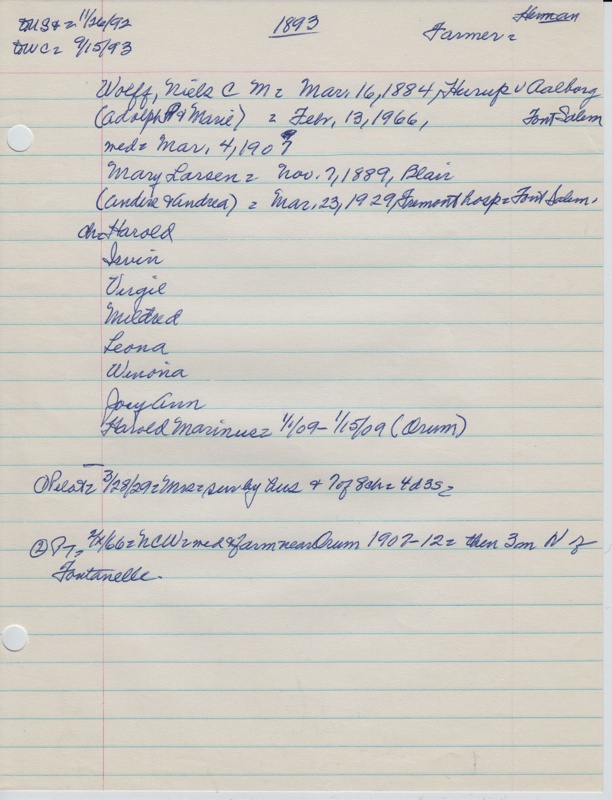 1893
Herman
DUS+ = 11/26/92
DWC = 9/15/93
Farmer =
Wolff, Niels C M = Mar. 16, 1884, Hurup v Aalborg
(Adolph & Marie) = Febr. 13, 1966, Font Salem
med = Mar. 4, 1907
Mary Larsen = Nov. 7, 1889, Blair
(Andre & Andrea) = Mar. 23, 1929, Fremont hosp = Font Salem.
ch = Harold
Irvin
Virgil
Mildred
Leona
Winona
Joey Ann
Harold Marinus = 1/1/09 - 1/15/09 (Orum)
① Pilot = 3/28/29 = Mrs = surv by hus & 7 of 8 ch = 4d 3s =
② /66 = NCW = med & farm near Orum 1907-12 = then 3m N of
Fontanelle.